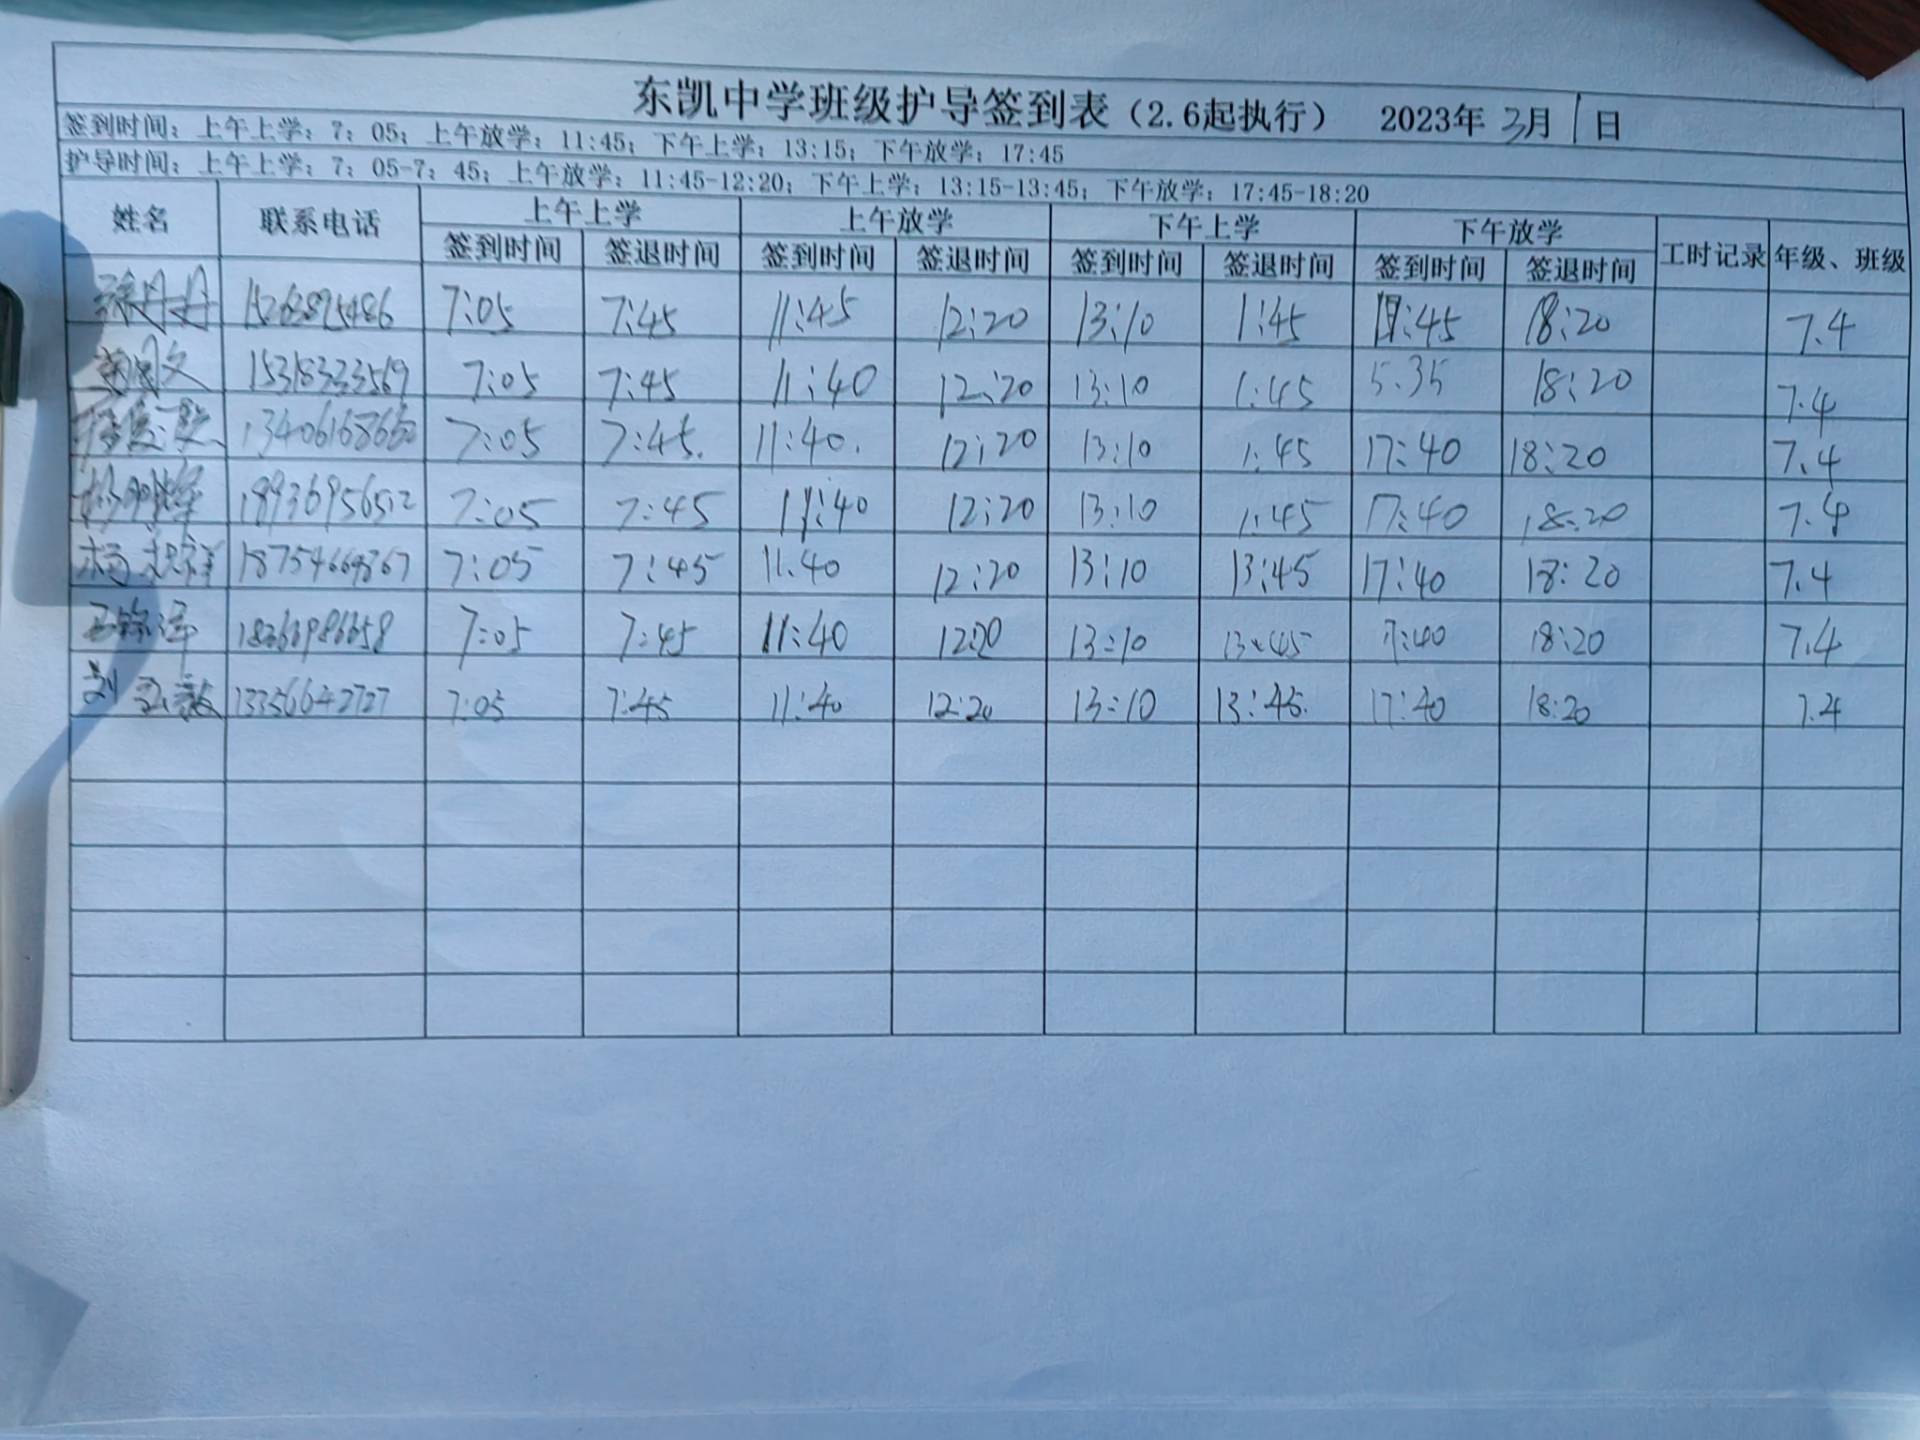 东凯中学班级护导签到表（2.6起执行） 2023年3月1日
签到时间：上午上学：7：05；上午放学：11:45；下午上学：13:15；下午放学：17:45
护导时间：上午上学：7：05-7：45；上午放学：11:45-12:20；下午上学：13:15-13:45；下午放学：17:45-18:20
姓名 联系电话 上午上学 上午放学 下午上学 下午放学 工时记录 年级、班级
签到时间 签退时间 签到时间 签退时间 签到时间 签退时间 签到时间 签退时间
7:05 7:45 11:45 12:20 13:10 1:45 17:45 18:20 7.4
15318333569 7:05 7:45 11:40 12:20 13:10 1:45 5.35 18:20 7.4
7:05 7:45. 11:40. 12:20 13:10 1:45 17:40 18:20 7.4
18936956512 7:05 7:45 11:40 12:20 13:10 1:45 17:40 18:20 7.4
7:05 7:45 11.40 12:20 13:10 13:45 17:40 18:20 7.4
7:05 7:45 11:40 12:20 13:10 13:45 17:40 18:20 7.4
刘 13356642727 7:05 7:45 11:40 12:20 13:10 13:45. 17:40 18:20 7.4